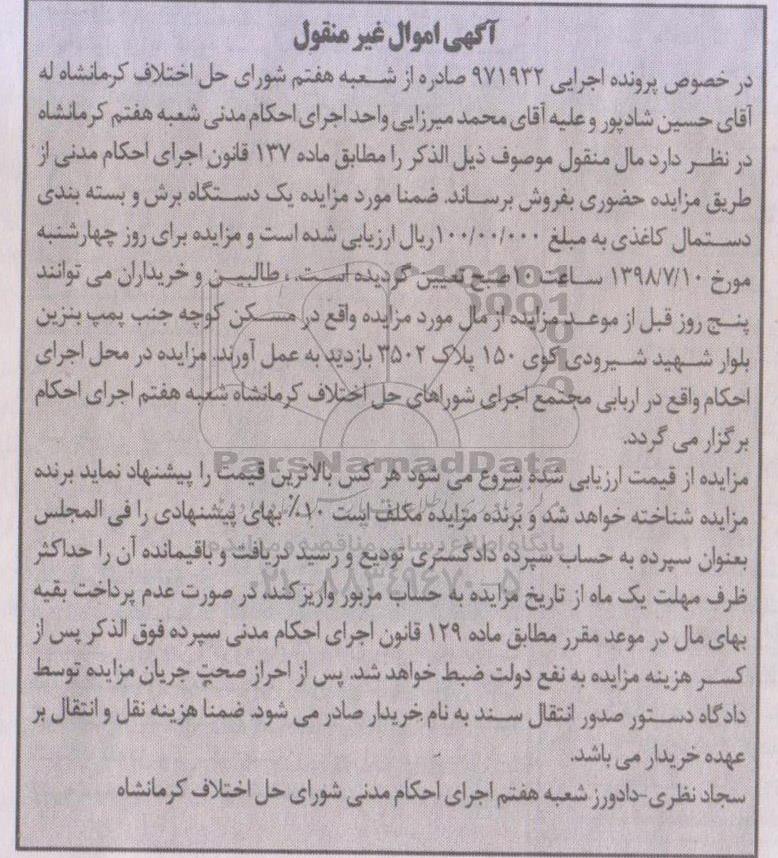 آگهی اموال غیر منقول
در خصوص پرونده اجرایی ۹۷۱۹۳۲ صادره از شعبه هفتم شورای حل اختلاف کرمانشاه له
آقای حسین شادپور و علیه آقای محمد میرزایی واحد اجرای احکام مدنی شعبه هفتم کرمانشاه
در نظر دارد مال منقول موصوف ذیل الذکر را مطابق ماده ۱۳۷ قانون اجرای احکام مدنی از
طریق مزایده حضوری بفروش برساند. ضمنا مورد مزایده یک دستگاه برش و بسته بندی
دستمال کاغذی به مبلغ ۱۰۰/۰۰/۰۰۰ریال ارزیابی شده است و مزایده برای روز چهارشنبه
مورخ ۱۳۹۸/۷/۱۰ ساعت ۱۰صبح تعیین گردیده است. ، طالبین و خریداران می توانند
پنج روز قبل از موعد مزایده از مال مورد مزایده واقع در مسکن کوچه جنب پمپ بنزین
بلوار شهید شیرودی کوی ۱۵۰ پلاک ۳۵۰۲ بازدید به عمل آورند. مزایده در محل اجرای
احکام واقع در اربابی مجتمع اجرای شوراهای حل اختلاف کرمانشاه شعبه هفتم اجرای احکام
برگزار می گردد.
مزایده از قیمت ارزیابی شده شروع می شود هر کس بالاترین قیمت را پیشنهاد نماید برنده
مزایده شناخته خواهد شد و برنده مزایده مکلف است ۱۰٪ بهای پیشنهادی را فی المجلس
بعنوان سپرده به حساب سپرده دادگستری تودیع و رسید دریافت و باقیمانده آن را حداکثر
ظرف مهلت یک ماه از تاریخ مزایده به حساب مزبور واریز کند. در صورت عدم پرداخت بقیه
بهای مال در موعد مقرر مطابق ماده ۱۲۹ قانون اجرای احکام مدنی سپرده فوق الذکر پس از
کسر هزینه مزایده به نفع دولت ضبط خواهد شد. پس از احراز صحت جریان مزایده توسط
دادگاه دستور صدور انتقال سند به نام خریدار صادر می شود. ضمنا هزینه نقل و انتقال بر
عهده خریدار می باشد.
سجاد نظری-دادورز شعبه هفتم اجرای احکام مدنی شورای حل اختلاف کرمانشاه
ParsNamadData
پایگاه اطلاع رسانی مناقصه و مزایده
۰۲۱-۸۸۳۴۹۶۷۰-۵